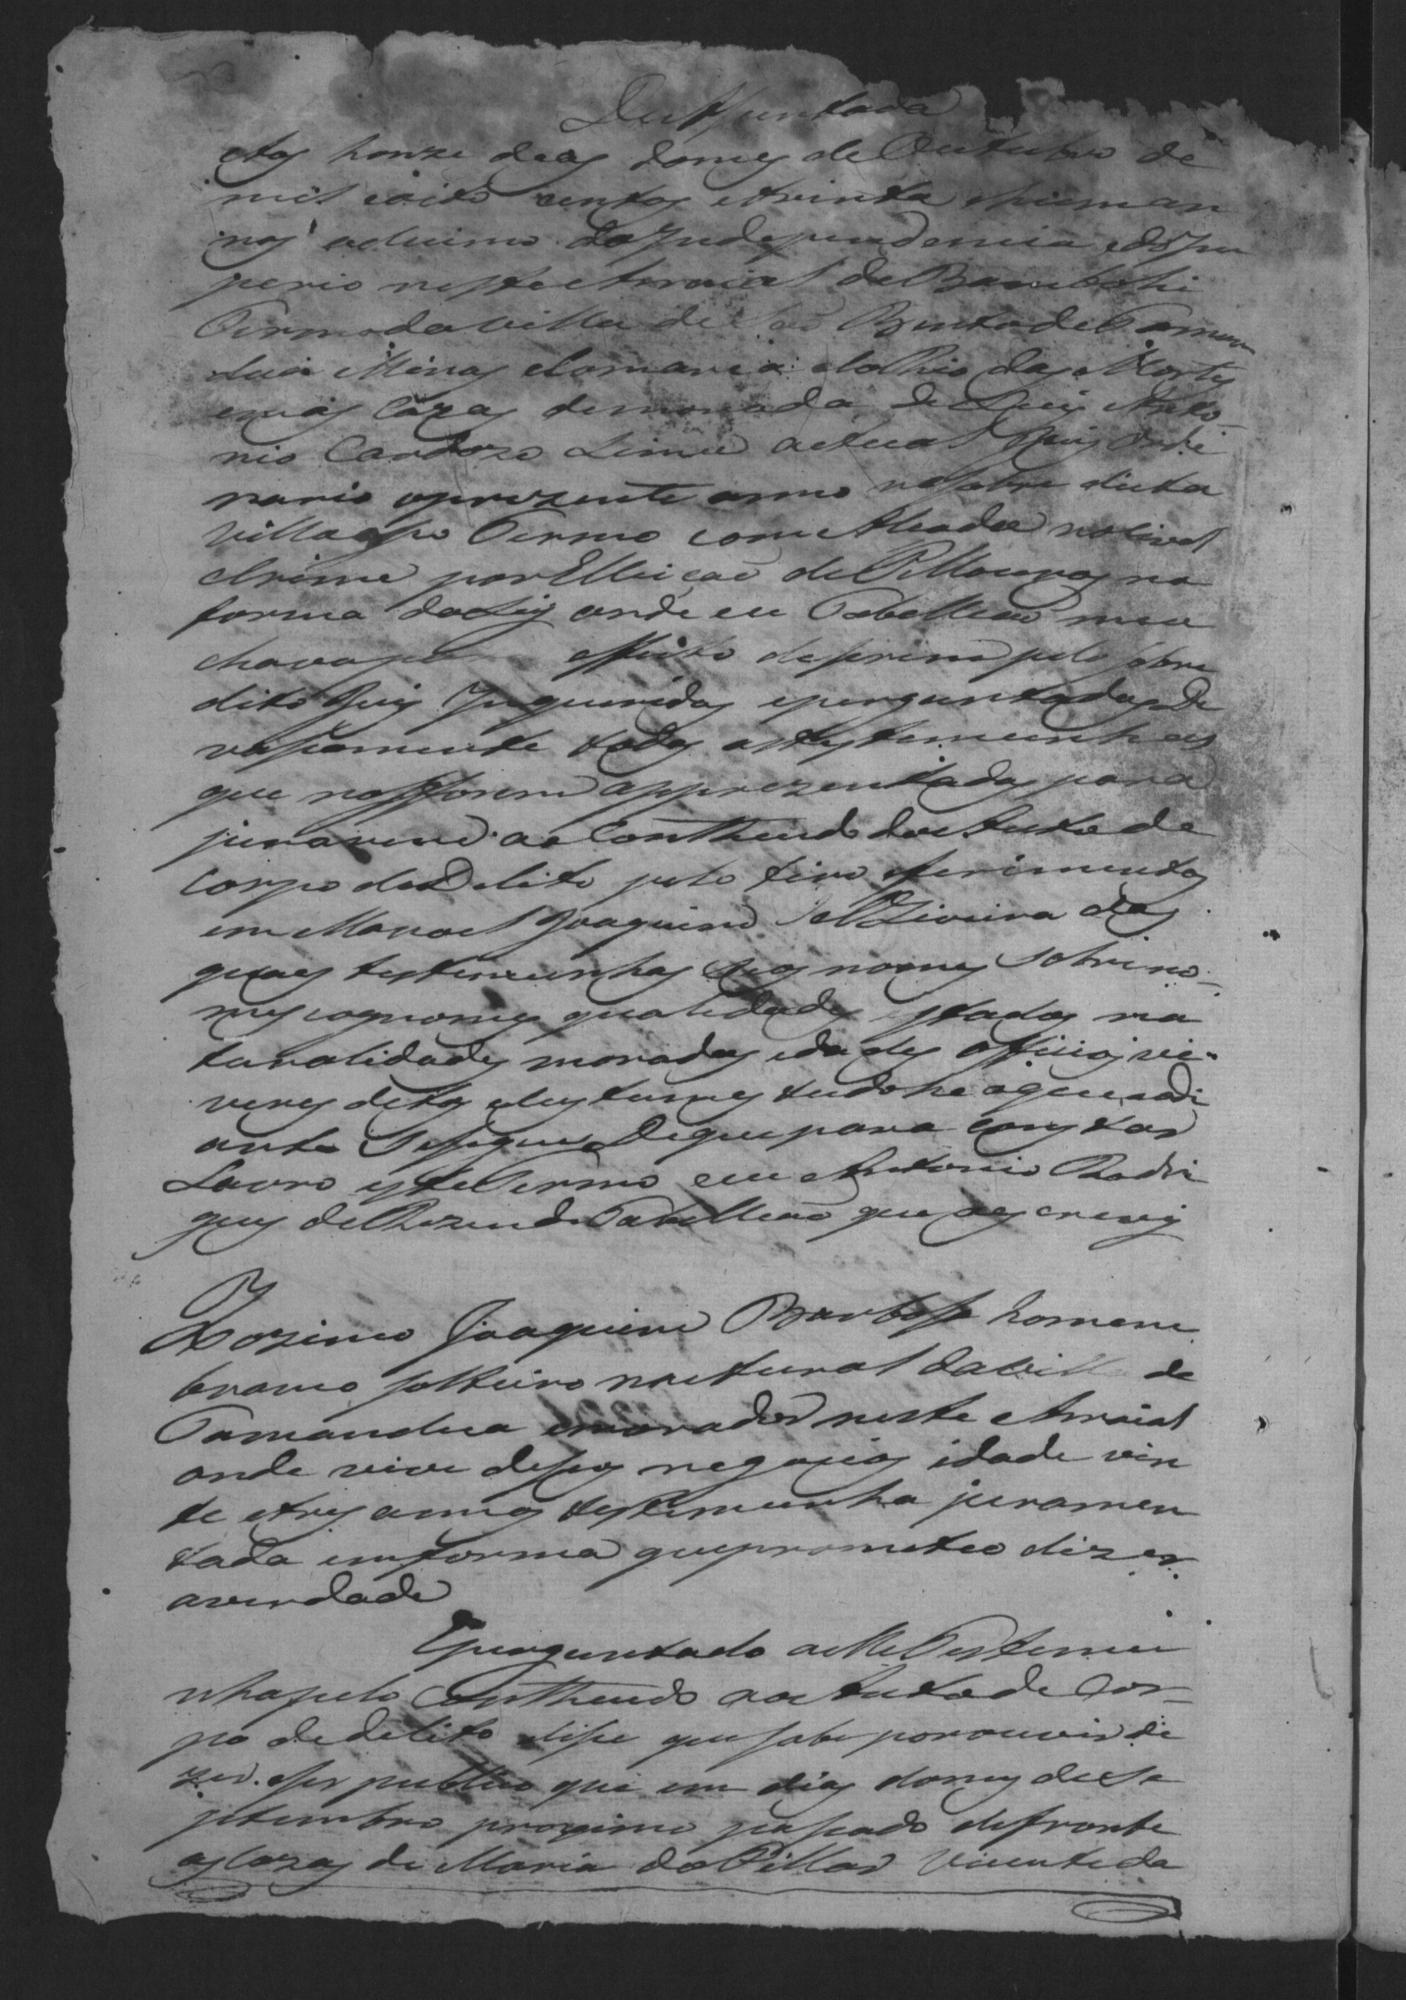 Assentada
Aos honze dias do mes de Outubro de
mil e oito centos e trinta e hum an
nos decimo da Independencia e do Im
perio neste Arraial de Bambohi
Termo da Villa de São Bento de Taman
dua Minas e Comarca do Rio das Mortes
em as Cazas de morada de Luis Anto
nio Cardozo Lima actual Juis Ordi
nario o prezente anno na sobre dita
Villa e seo Termo com Alsada no Civel
e Crime por Elleição de Pellouros na
forma da Ley onde eu Tabellião me a
chava pª effeito de serem pelo sobre
dito Juis Inqueridas e perguntadas De
vassamente todas as testemunhas
que nos forem apprezentadas para
jurarem ao Contheudo do Auto de
Corpo de Delito pelo tiro e ferimentos
em Manoel Joaquim de Oliveira das
quaes testemunhas seos nomes sobreno
mes cognomes qualidades estados na
turalidades moradas idades officios vi
veres ditos e custumes tudo he o que adi
ante se segue De que para constar
Lavro este Termo eu Antonio Rodri
gues de Rezende Tabellião que o escrevy
1
Zozimo Joaquim Barbosa homem
branco solteiro natural da Villa de
Tamandua e morador neste Arraial
onde vive de seos negocios idade vin
te e tres annos testemunha juramen
tada em forma que prometeo dizer
a verdade
E perguntado a elle Testemu
nha pelo Contheudo no Auto de Cor
po de delito disse que sabe por ouvir di
zer e ser publico que em dias do mes de Se
ptembro proximo passado defronte
as Cazas de Maria do Pillar Vicente da